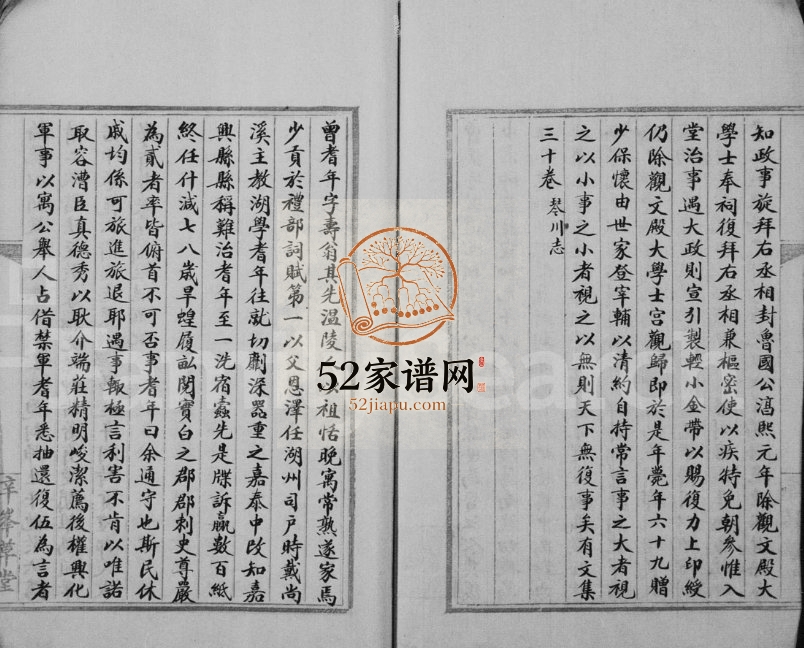 知政事旋拜右丞相封魯國公淳熙元年除觀文殿大
學士奉祠復拜右丞相兼樞密使以疾特免朝參惟入
堂治事遇大政則宣引製輕小金帶以賜復力上印綬
仍除觀文殿大學士宮觀歸即於是年薨年六十九贈
少保懷由世家登宰輔以清約自持常言事之大者視
之以小事之小者視之以無則天下無復事矣有文集
三十卷 琴川志
曾耆年字壽翁其先温陵 祖恬晚寓常熟遂家焉
少貢於禮部詞賦第一以父恩澤任湖州司户時戴尚
溪主教湖學耆年往就切劘深器重之嘉泰中改知嘉
興縣縣稱難治耆年至一洗宿蠹先是牒訴贏數百紙
終任什減七八歲旱蝗履畝閱實白之郡郡刺史尊嚴
為貳者率皆俯首不可否事耆年曰余通守也斯民休
戚均係可旅進旅退耶遇事輒極言利害不肯以唯諾
取容漕臣真德秀以耿介端莊精明峻潔薦後權興化
軍事以寓公舉人占借禁軍耆年悉抽還復伍為言者
草堂
52家谱网
52jiapu.com